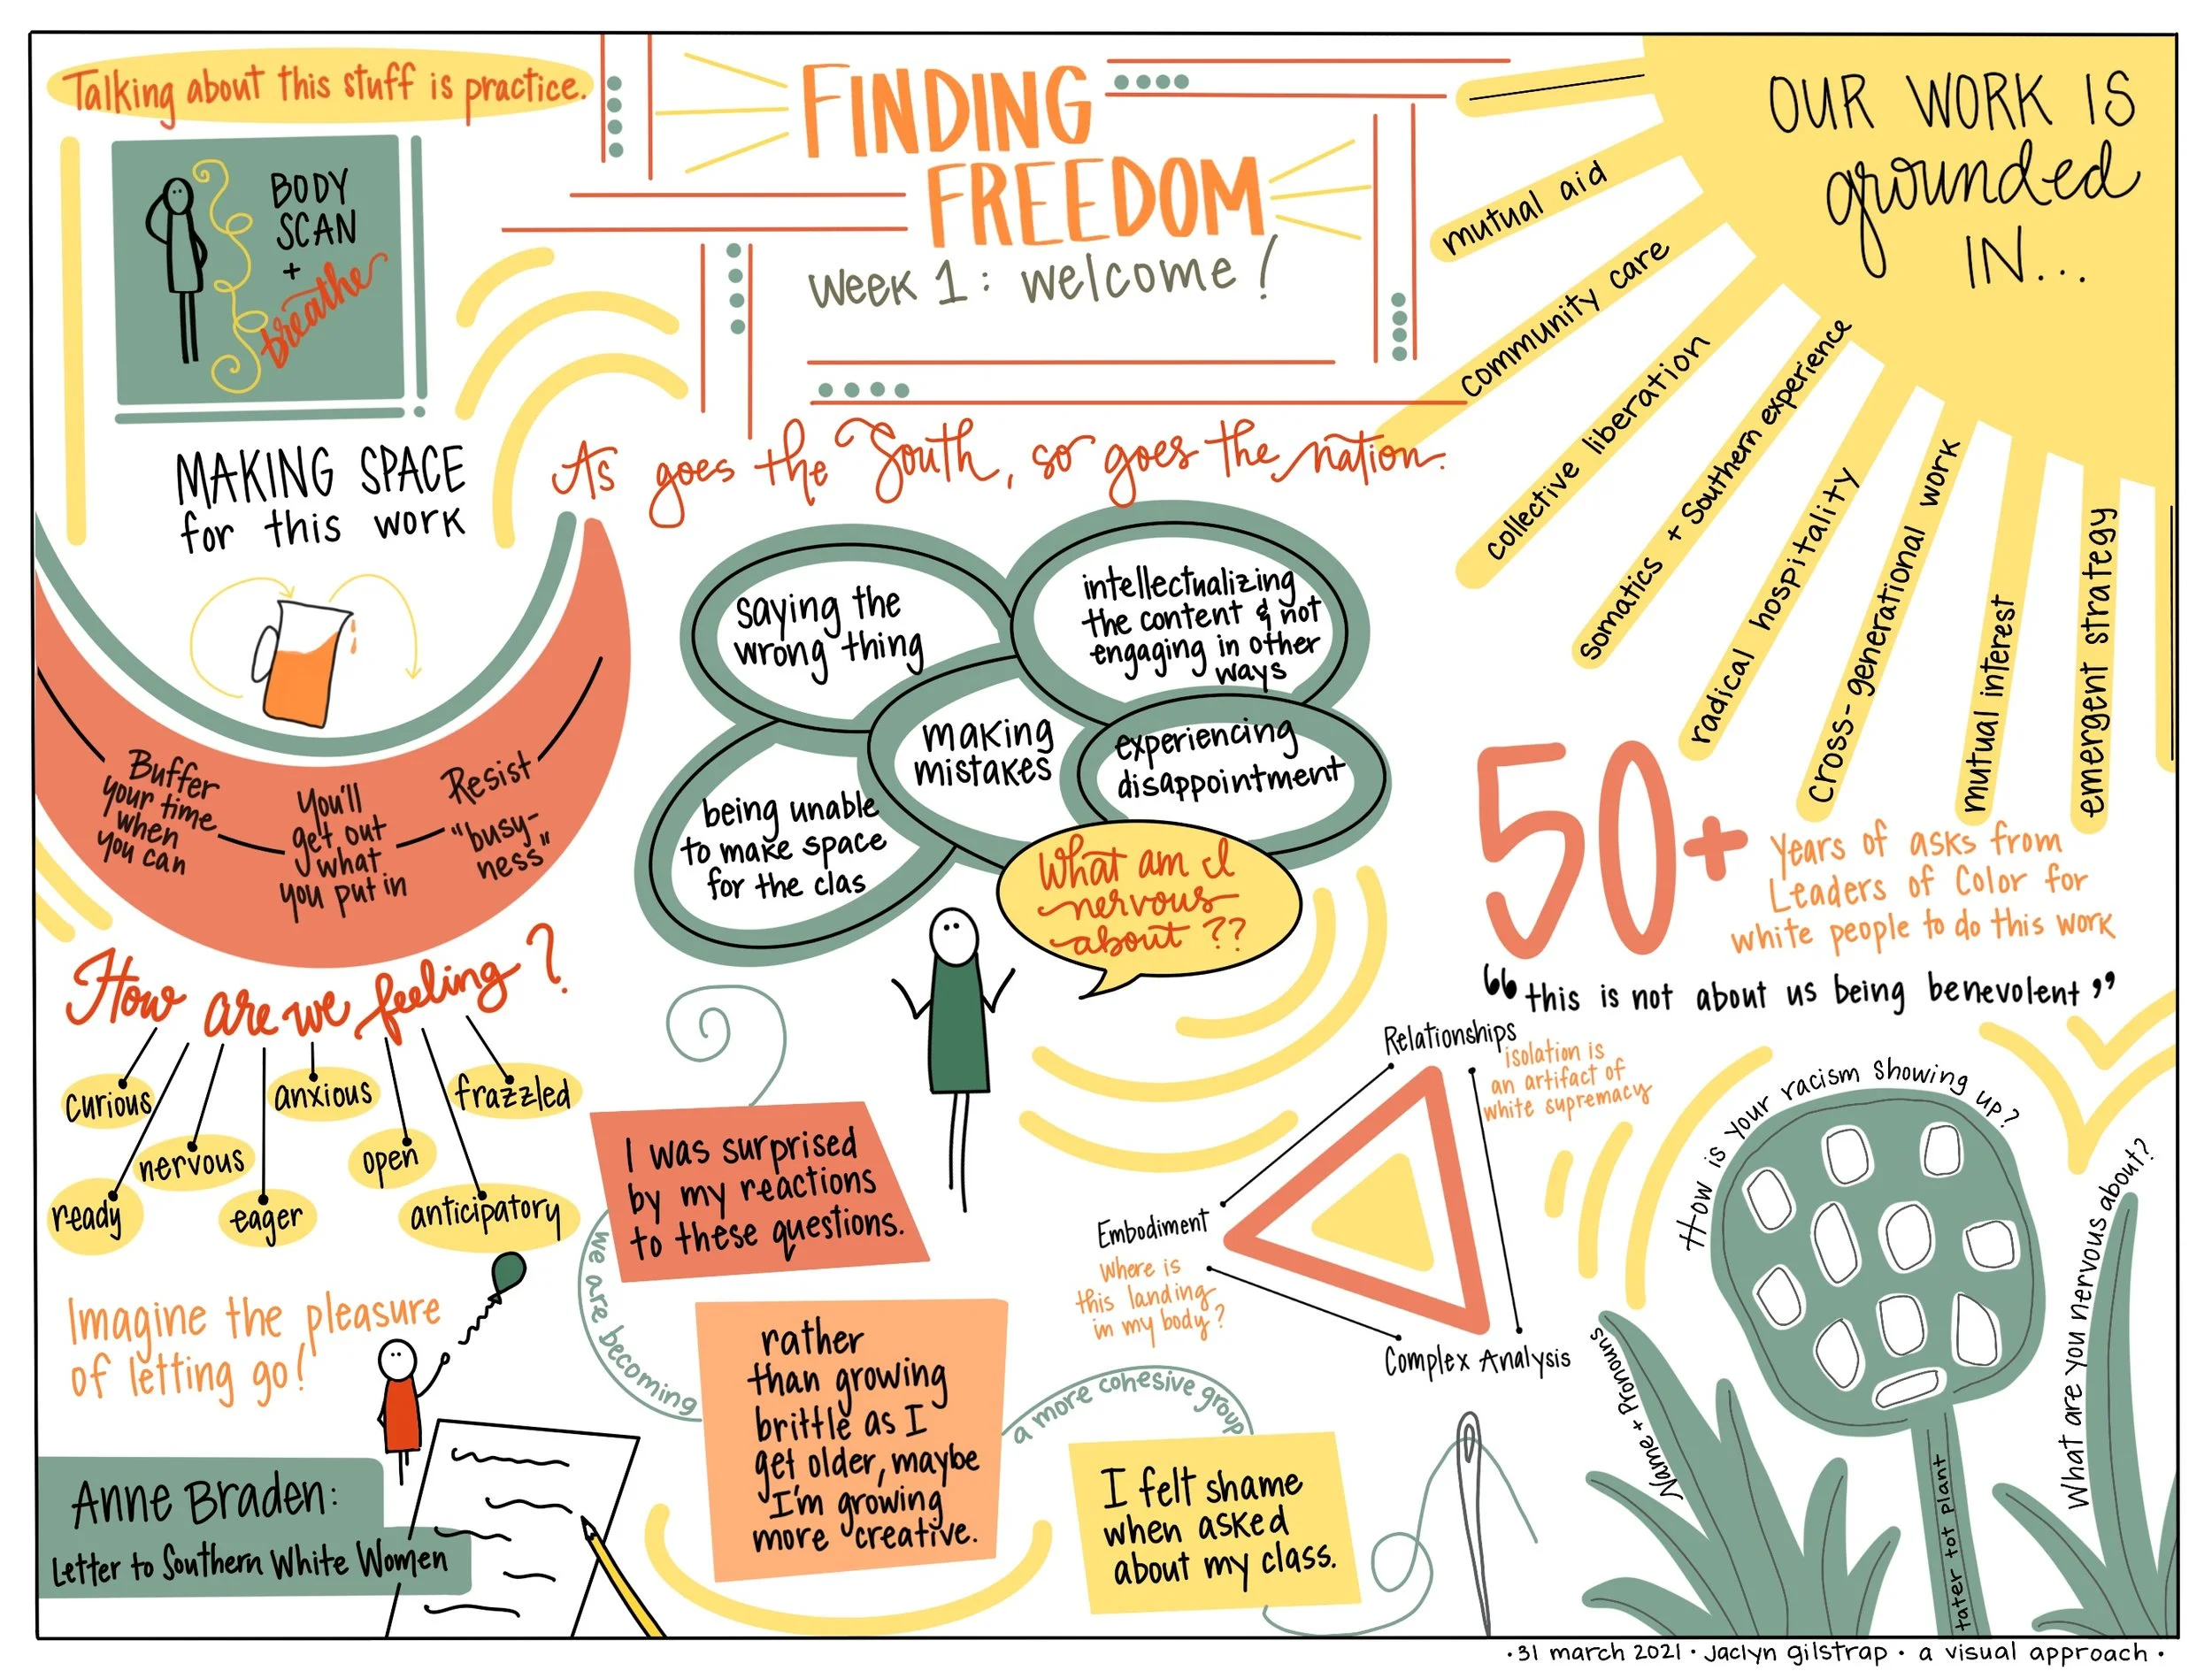 Talking about this stuff is practice.
BODY
SCAN
+
breathe
FINDING
FREEDOM
Week 1: Welcome!
OUR WORK IS
grounded
IN...
mutual aid
community care
collective liberation
somatics + Southern experience
radical hospitality
cross-generational work
mutual interest
emergent strategy
MAKING SPACE
for this work
Buffer
your time
when
you can
You'll
get out
what
you put in
Resist
"busy-
ness"
As goes the South, so goes the nation.
saying the
wrong thing
intellectualizing
the content & not
engaging in other
ways
making
mistakes
experiencing
disappointment
being unable
to make space
for the clas
What am I
nervous
about ??
50+
Years of asks from
Leaders of Color for
white people to do this work
“this is not about us being benevolent”
How are we feeling?
curious
anxious
frazzled
nervous
open
ready
eager
anticipatory
Imagine the pleasure
of letting go!
Anne Braden:
Letter to Southern White Women
I was surprised
by my reactions
to these questions.
we are becoming
rather
than growing
brittle as I
get older, maybe
I'm growing
more creative.
a more cohesive group
I felt shame
when asked
about my class.
Relationships
isolation is
an artifact of
white supremacy
Embodiment
Where is
this landing
in my body?
Complex Analysis
How is your racism showing up?
Name + Pronouns
What are you nervous about?
tater tot plant
·31 march 2021 · Jaclyn gilstrap · a visual approach ·